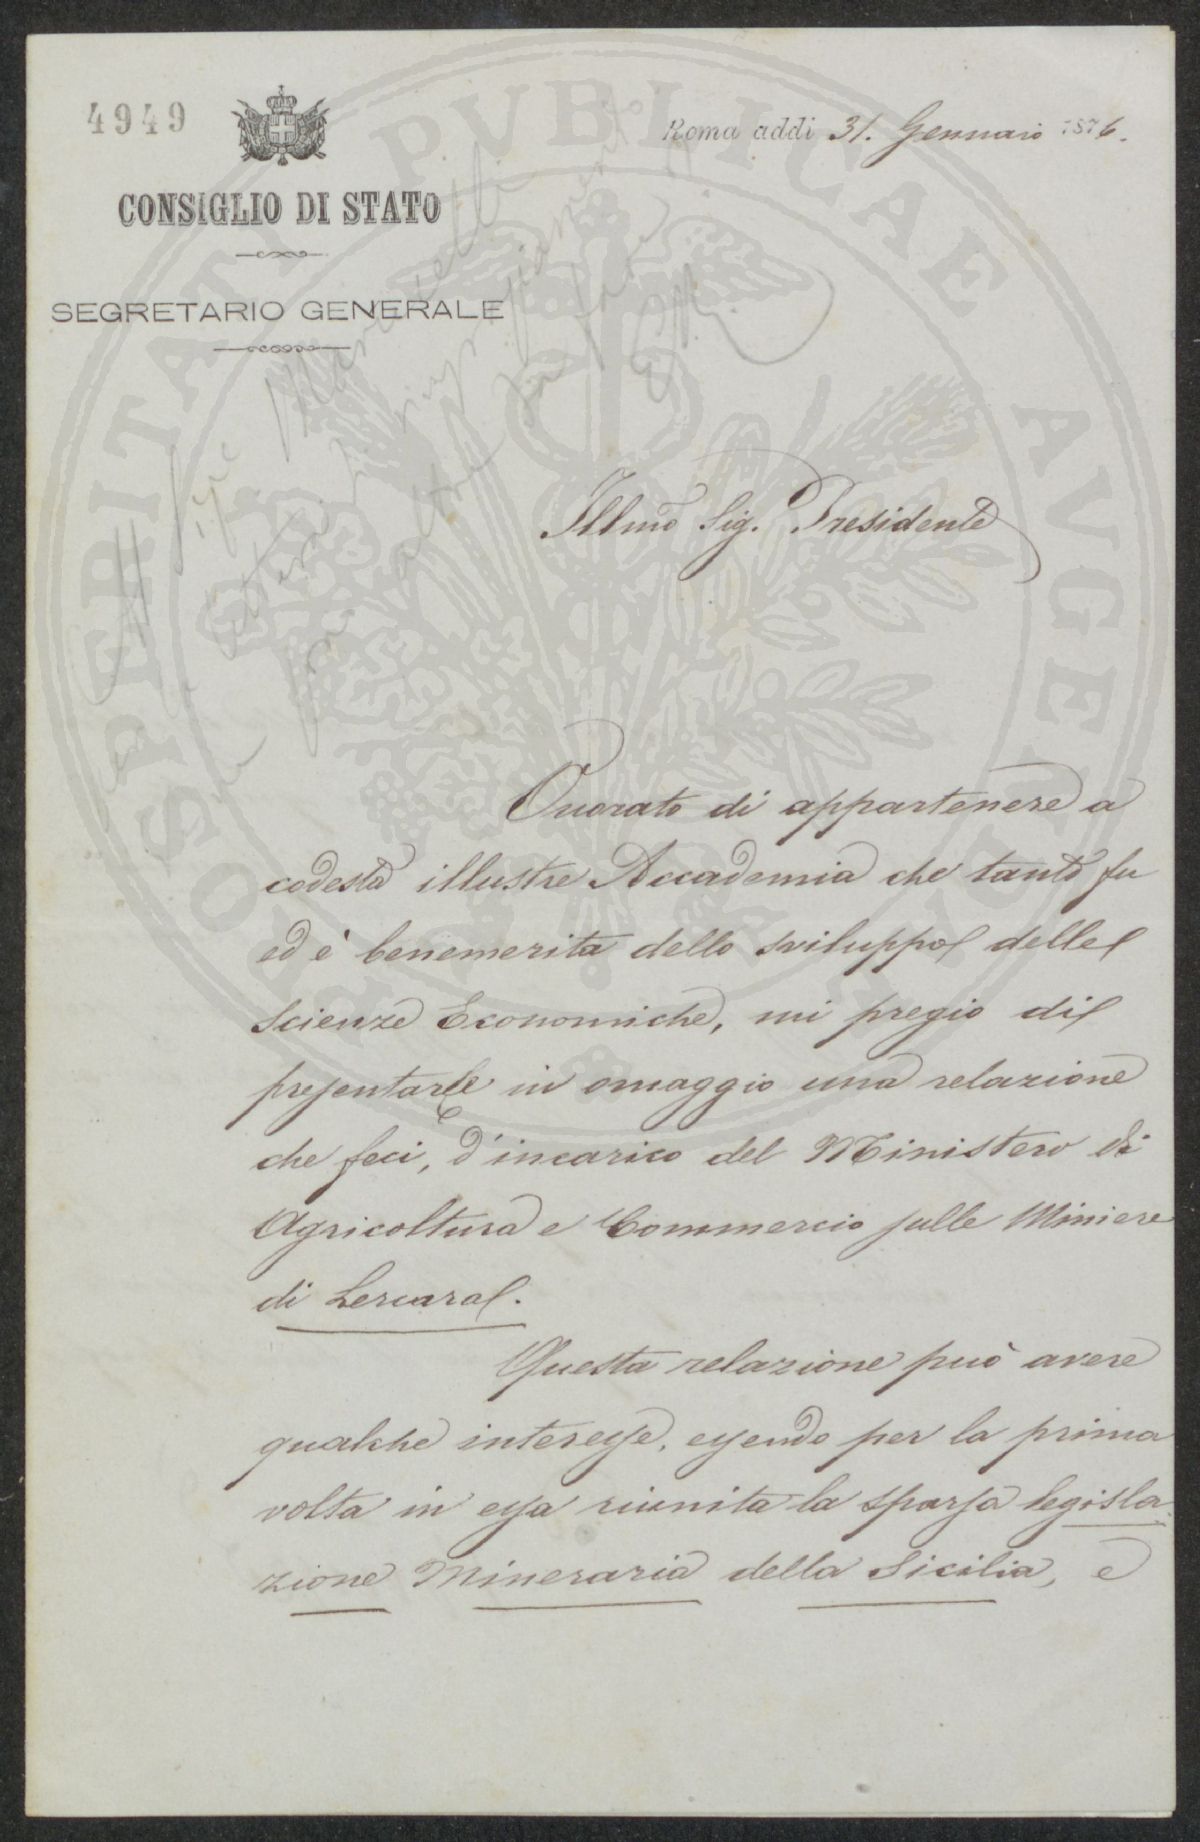 4949
Roma addi 31. Gennaio 1876.
CONSIGLIO DI STATO
SEGRETARIO GENERALE
Illmo Sig. Presidente
Onorato di appartenere a
codesta illustre Accademia che tanto fu
ed è benemerita dello sviluppo delle
scienze Economiche, mi pregio di
presentarle in omaggio una relazione
che feci, d'incarico del Ministero di
Agricoltura e Commercio sulle Miniere
di Lercara.
Questa relazione può avere
qualche interesse, essendo per la prima
volta in essa riunita la sparsa legisla
zione Mineraria della Sicilia, e
PROSPERITATI PVBLICAE AVGENDAE